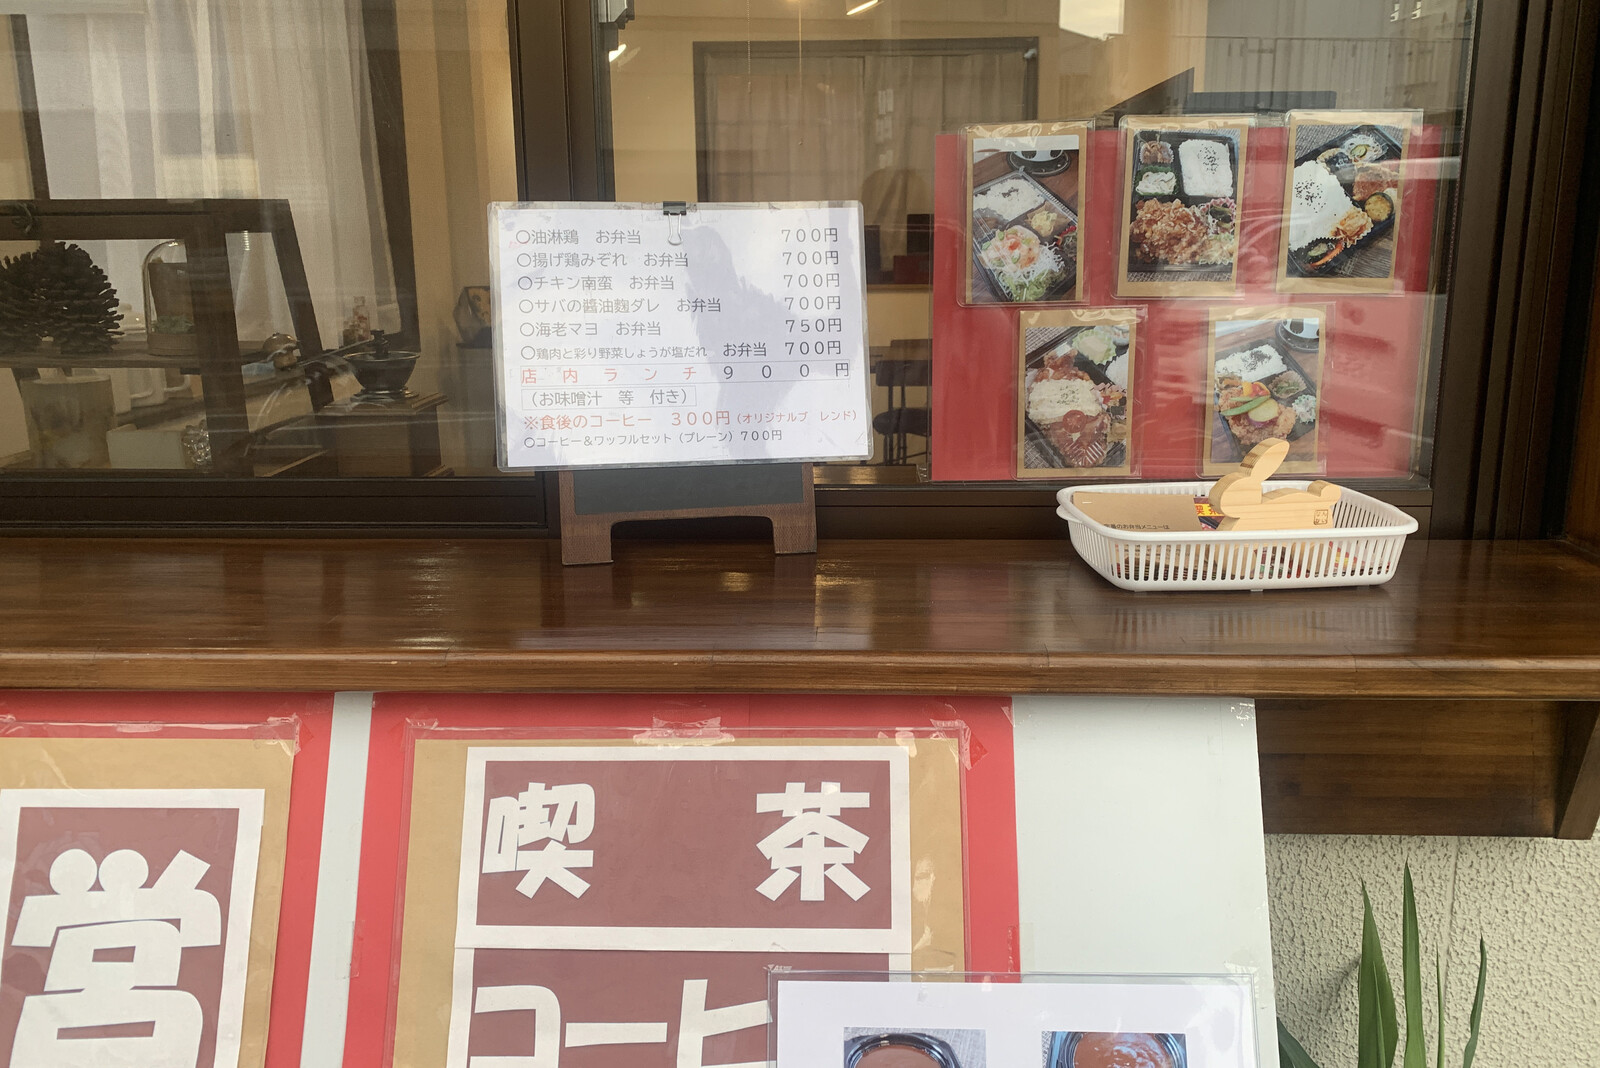 〇油淋鶏　お弁当　７００円
〇揚げ鶏みぞれ　お弁当　７００円
〇チキン南蛮　お弁当　７００円
〇サバの醬油麹ダレ　お弁当　７００円
〇海老マヨ　お弁当　７５０円
〇鶏肉と彩り野菜しょうが塩だれ　お弁当　７００円
店内ランチ　９００円
（お味噌汁　等　付き）
※食後のコーヒー　３００円（オリジナルブ　レンド）
〇コーヒー＆ワッフルセット（プレーン）７００円
のお弁当メニューは
喫茶
営
喫茶
コーヒ